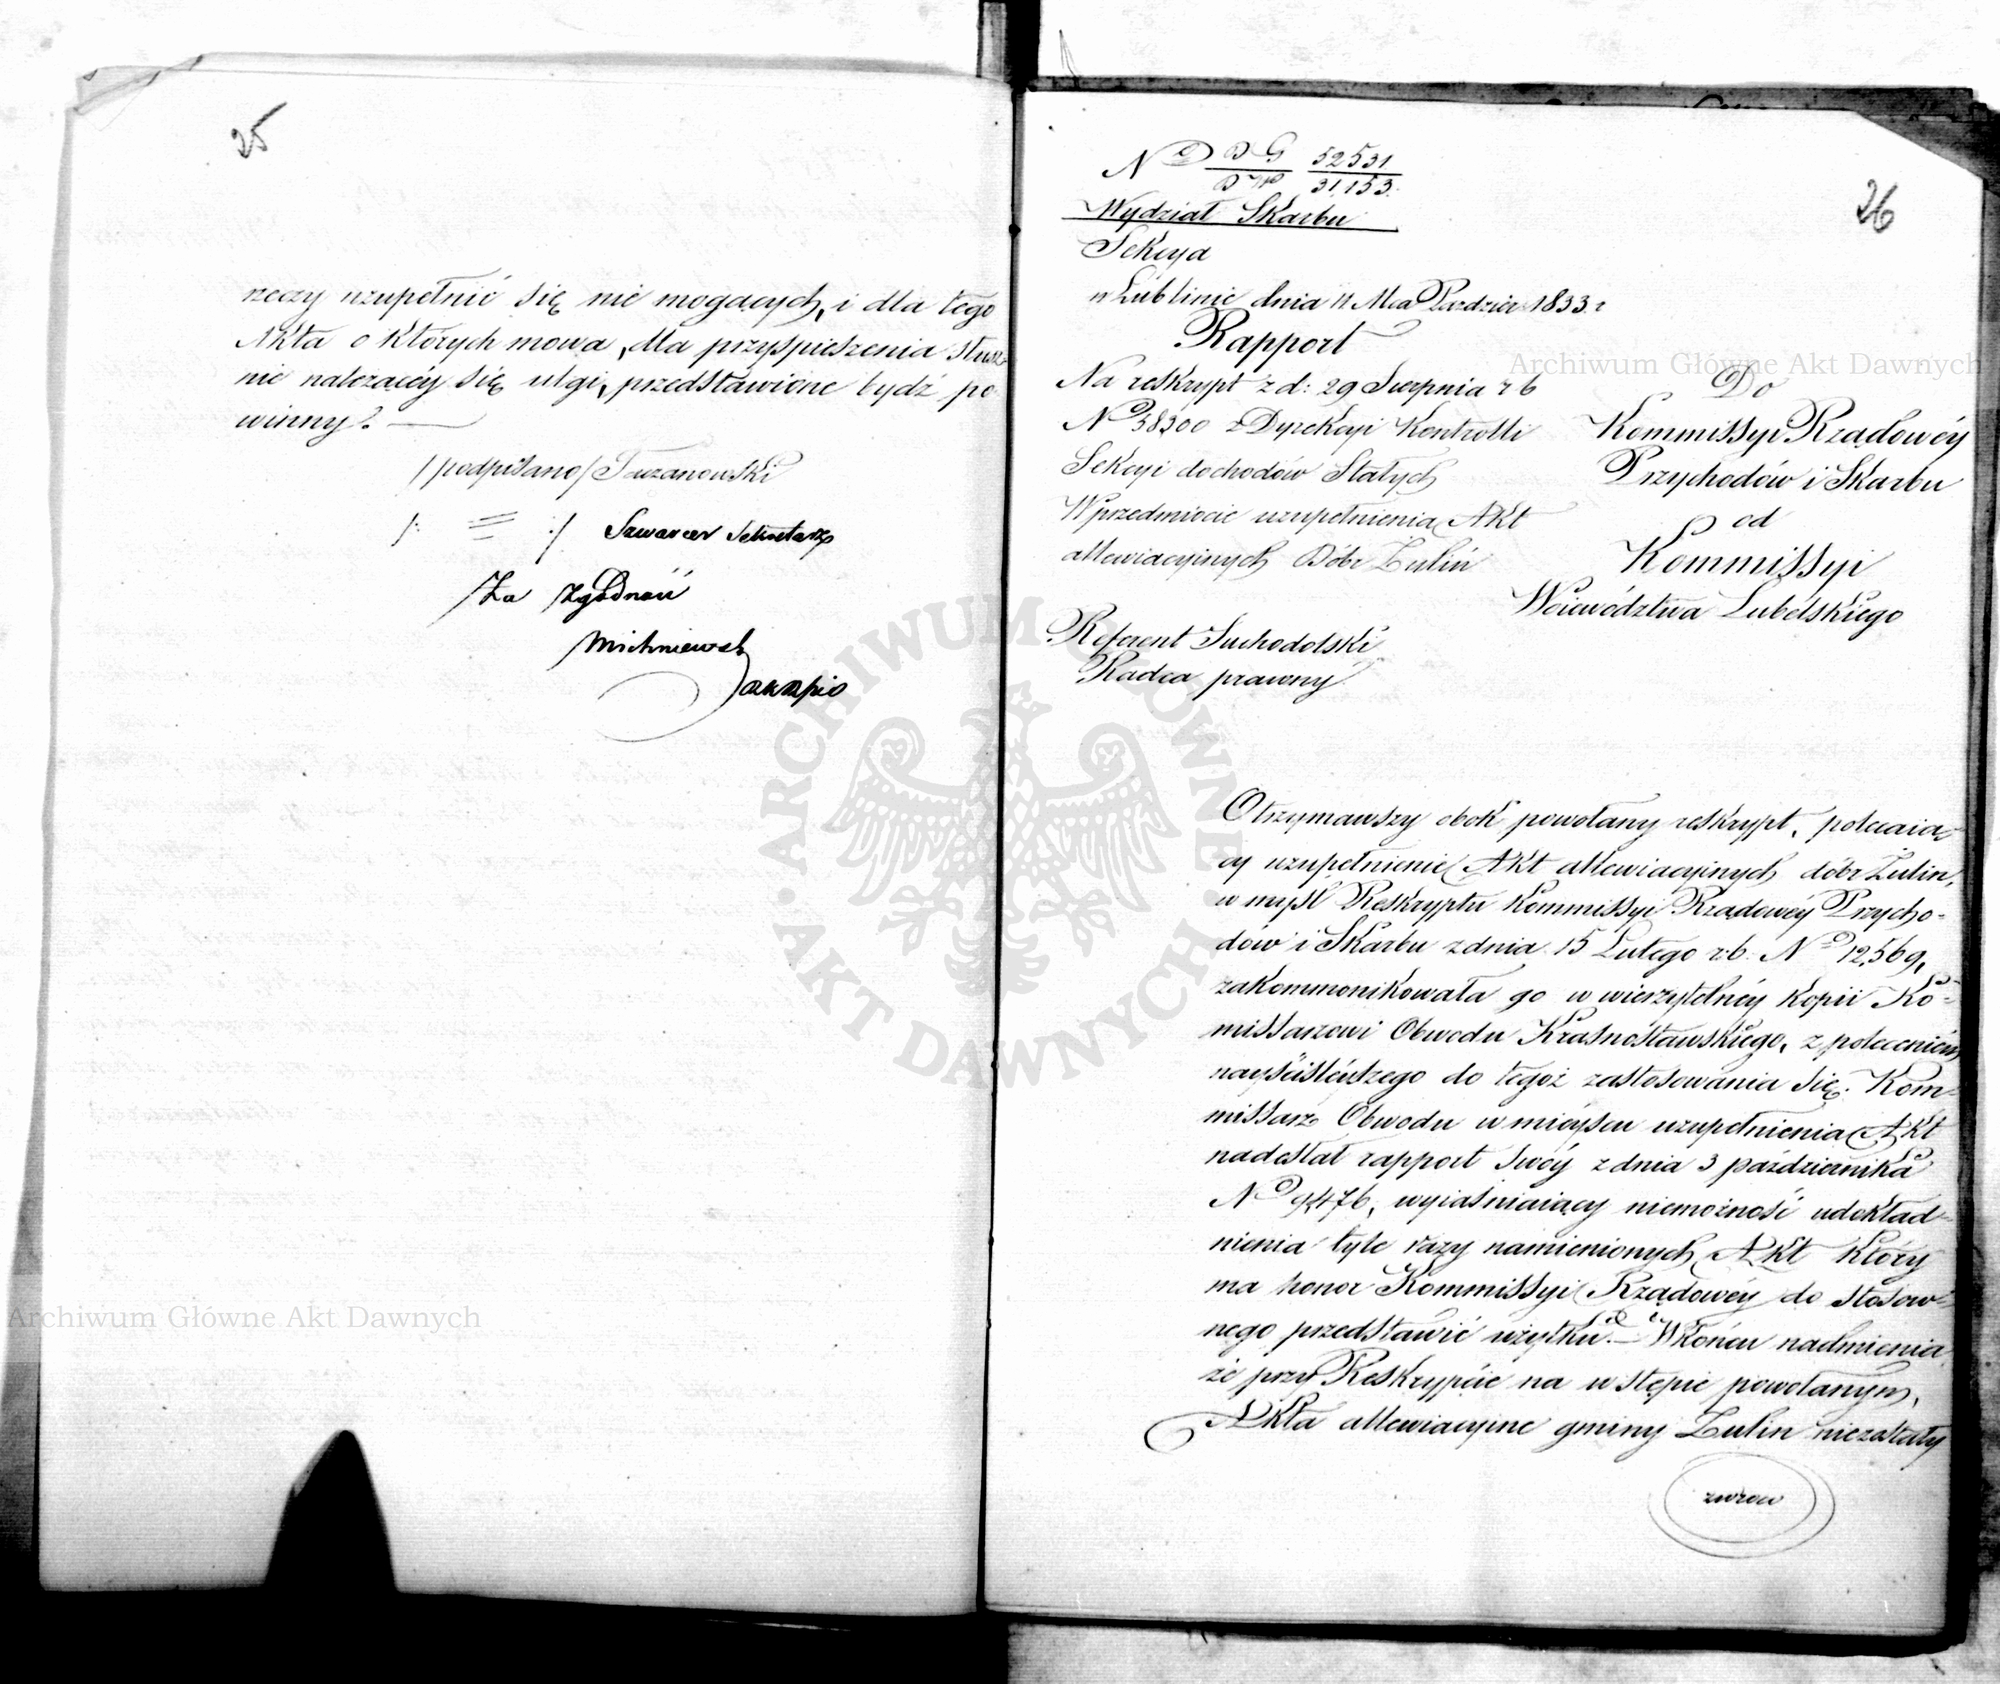 25
rzeczy uzupełnić się nie mogących, i dla tego
Akta o których mowa, dla przyspieszenia słusz-
nie należącéy się ulgi, przedstawione bydź po
winny? —
/podpisano/ Tuszanowski
/: = :/ Szwarcer Sekretarz
Za zgodność
Michniewsk
26
No DG 52531
DW 31,153.
Wydział Skarbu
Sekcya
w Lublinie dnia 11 Mca Paździer 1833 r
Rapport
Na reskrypt z d: 29 Sierpnia r b
No 58300 z Dyrekcyi Kontrolli
Sekcyi dochodów Stałych
W przedmiocie uzupełnienia Akt
allewiacyinych Dóbr Żulin
Referent Suchodolski
Radca prawny
Do
Kommissyi Rządowéy
Przychodów i Skarbu
od
Kommissyi
Woiewództwa Lubelskiego
Otrzymawszy obok powołany reskrypt, polecaią-
cy uzupełnienie Akt allewiacyinych dóbr Żulin,
w myśl Reskryptu Kommissyi Rządowéy Przycho-
dów i Skarbu z dnia 15 Lutego r: b: No 12,569,
zakommonikowała go w wierzytelnéy kopii Ko-
missarzowi Obwodu Krasnostawskiego, z poleceniem
nayściśleyszego do tegoż zastosowania się. Kom-
missarz Obwodu w mieyscu uzupełnienia Akt
nadesłał rapport swóy z dnia 3 października
No 9,476, wyiaśniaiący niemożność udokład-
nienia tyle razy namienionych Akt który
ma honor Kommissyi Rządowéy do stosow-
nego przedstawić użytku. — W końcu nadmienia
że przy Reskrypcie na wstępie powołanym,
Akta allewiacyine gminy Żulin niezostały
zwrow
Archiwum Główne Akt Dawnych
Archiwum Główne Akt Dawnych
ARCHIWUM GŁÓWNE AKT DAWNYCH